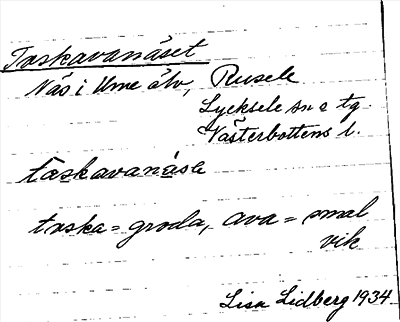 Tæskavanäset
Näs i Ume älv, Rusele
Lycksele sn o tg.
Västerbottens l.
tæskavanása
tæska = groda, ava = smal
vik
Lisa Lidberg 1934